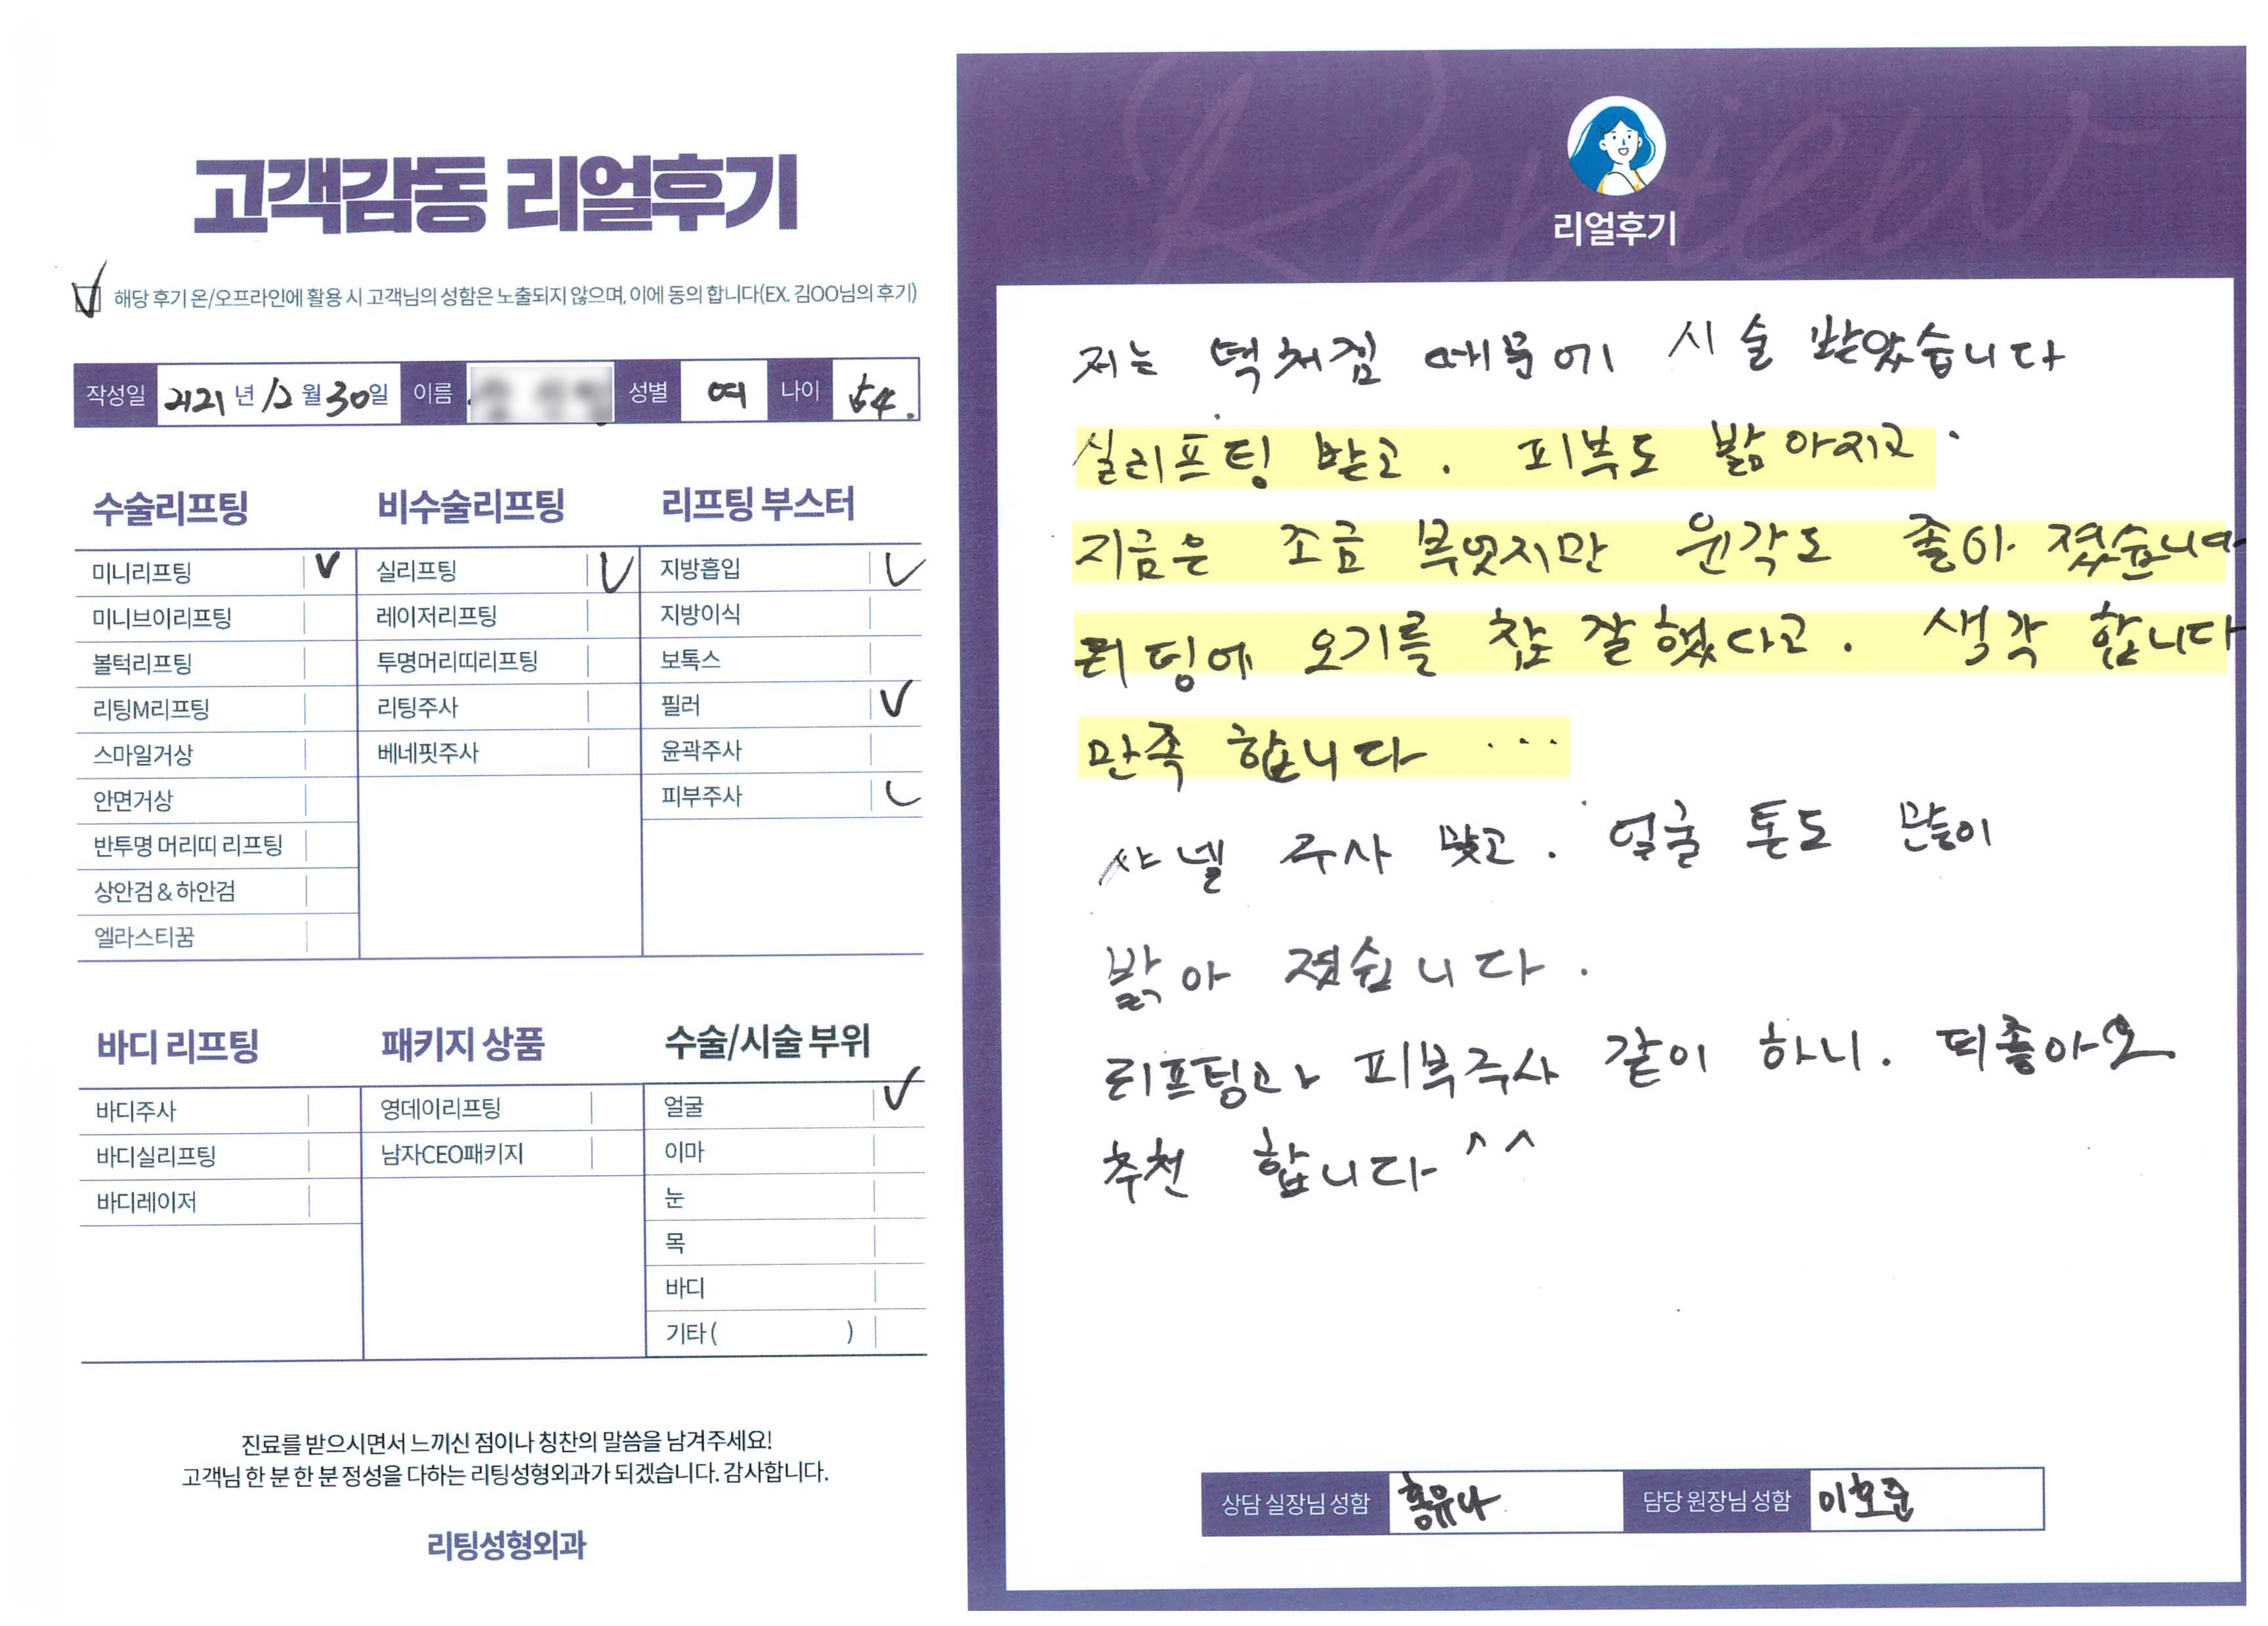 고객감동 리얼후기
해당 후기 온/오프라인에 활용 시 고객님의 성함은 노출되지 않으며, 이에 동의 합니다(EX. 김OO님의 후기)
작성일 2121년 12월 30일 이름 성별 여 나이 54.
수술리프팅
미니리프팅 V
미니브이리프팅
볼턱리프팅
리팅M리프팅
스마일거상
안면거상
반투명 머리띠 리프팅
상안검 & 하안검
엘라스티꿈
비수술리프팅
실리프팅 V
레이저리프팅
투명머리띠리프팅
리팅주사
베네핏주사
리프팅 부스터
지방흡입 V
지방이식
보톡스
필러 V
윤곽주사
피부주사 V
바디 리프팅
바디주사
바디실리프팅
바디레이저
패키지 상품
영데이리프팅
남자CEO패키지
수술/시술 부위
얼굴 V
이마
눈
목
바디
기타 ( )
진료를 받으시면서 느끼신 점이나 칭찬의 말씀을 남겨주세요!
고객님 한 분 한 분 정성을 다하는 리팅성형외과가 되겠습니다. 감사합니다.
리팅성형외과
Review
리얼후기
저는 턱처짐 때문에 시술 받았습니다
실리프팅 받고. 피부도 밝아지고.
지금은 조금 부엇지만 윤각도 좋아 졌습니다
리팅에 오기를 참 잘했다고. 생각 합니다
만족 합니다 ...
샤넬 주사 맞고. 얼굴 톤도 많이
밝아 졌습니다.
리프팅과 피부주사 같이 하니. 더좋아요
추천 합니다 ^^
상담 실장님 성함 홍유나 담당 원장님 성함 이호준